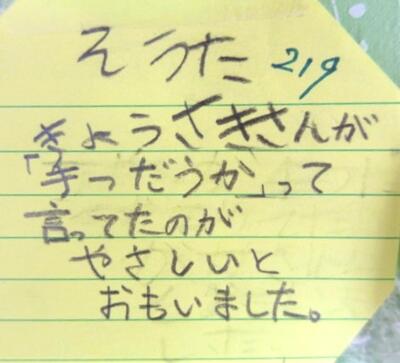 そうた 219
きょうさきさんが
「手つだうか」って
言ってたのが
やさしいと
おもいました。